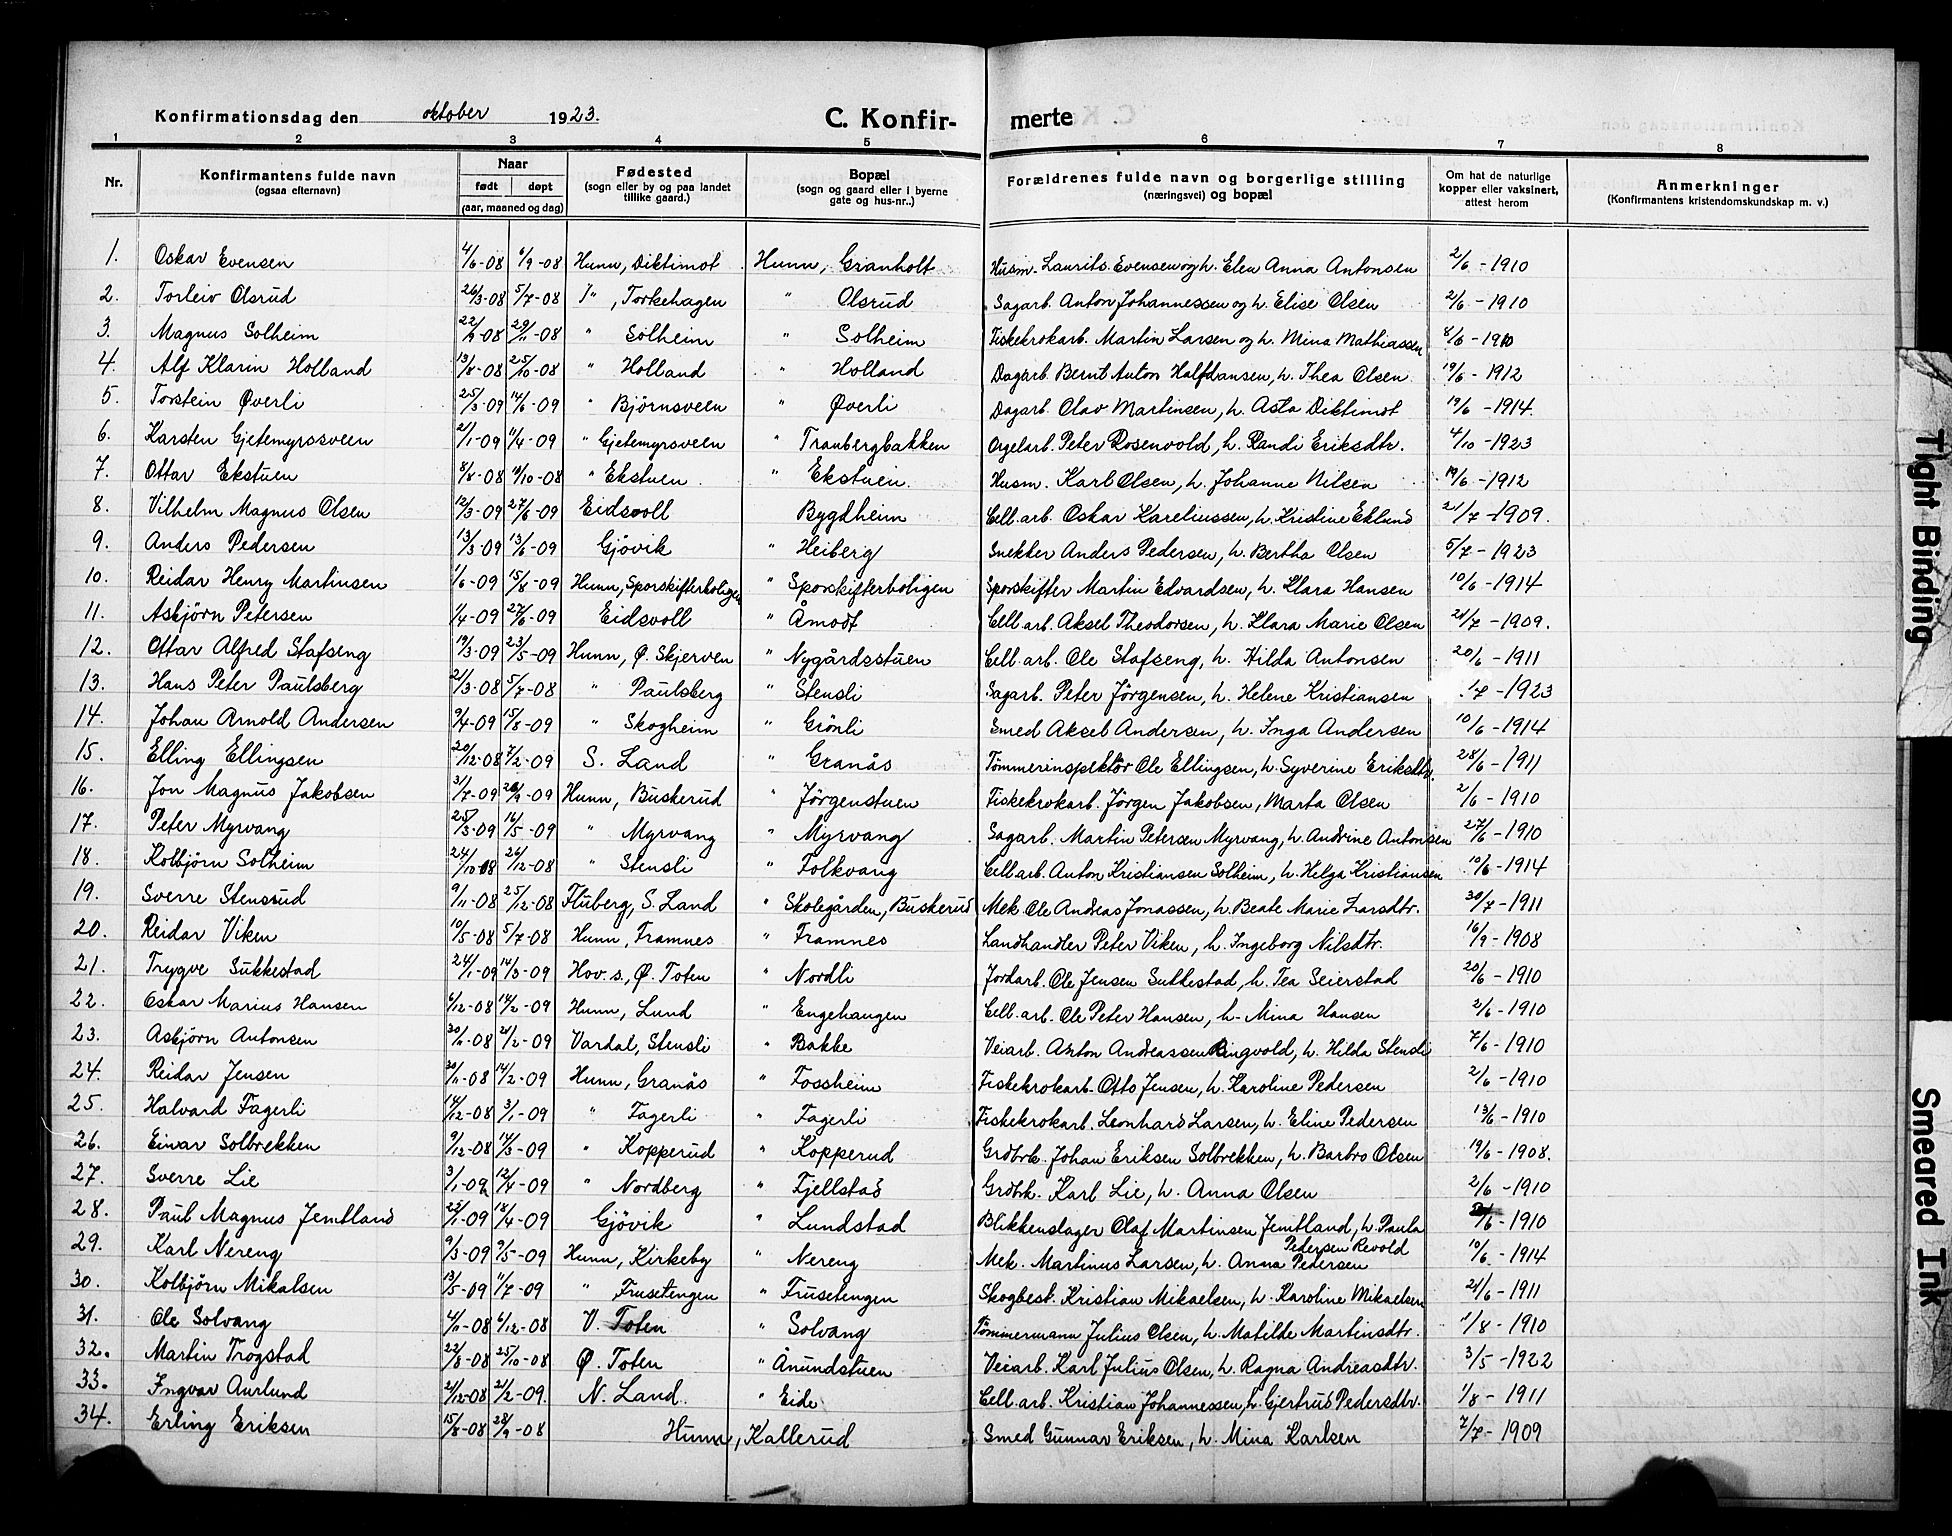 Konfirmationsdag den oktober 1923. C. Konfirmerte
1 2 3 4 5 6 7 8
Nr. Konfirmantens fulde navn (ogsaa efternavn) Naar født døpt (aar, maaned og dag) Fødested (sogn eller by og paa landet tillike gaard.) Bopæl (sogn og gaard eller i byerne gate og hus-nr..) Forældrenes fulde navn og borgerlige stilling (næringsvei) og bopæl Om hat de naturlige kopper eller vaksinert, attest herom Anmerkninger (Konfirmantens kristendomskundskap m. v.)
1. Oskar Evensen 4/6-08 6/9-08 Hunn, Diktimot Hunn, Granholt Husm. Laurits Evensen og h. Elen Anna Antonsen 2/6-1910
2. Torleiv Olsrud 26/3-08 5/7-08 Torkehagen " Olsrud Sagarb. Anton Johannessen og h. Elise Olsen 2/6-1910
3. Magnus Solheim 29/11-08 " Solheim " Solheim Fiskekrokarb. Martin Larsen og h. Mina Mathiassen 8/6-1910
4. Alf Klarin Holland 13/8-08 25/10-08 " Holland " Holland Dagarb. Bernt Anton Halfdansen, h. Thea Olsen 19/6-1912
5. Torstein Øverli 25/3-09 14/6-09 " Björnsveen " Øverli Dagarb. Olav Martinsen, h. Asta Diktimot 19/6-1914.
6. Karsten Gjetemyrsveen 2/1-09 11/4-09 " Gjetemyrsveen " Tranbergbakken Orgelarb. Peter Rosenvold, h. Randi Eriksdtr. 4/10-1923
7. Ottar Ekstuen 8/8-08 11/10-08 " Ekstuen " Ekstuen. Husm. Karl Olsen, h. Johanne Nilsen 19/6-1912
8. Vilhelm Magnus Olsen 12/3-09 27/6-09 Eidsvoll " Bygdheim Cell.arb. Oskar Kareliussen, h. Kristine Eklund 21/7-1909.
9. Anders Pedersen 13/3-09 13/6-09 Gjövik " Heiberg Snekker Anders Pedersen, h. Bertha Olsen 5/7-1923
10. Reidar Henry Martinsen 1/6-09 15/8-09 Hunn, Sporskifterboligen " Sporskifterboligen Sporskifter Martin Edvardsen, h. Klara Hansen 10/6-1914
11. Asbjörn Petersen 1/4-09 27/6-09 Eidsvoll " Åmodt Cell.arb. Aksel Theodorsen, h. Klara Marie Olsen 21/7-1909.
12. Ottar Alfred Stafseng 19/3-09 23/5-09 Hunn, Ø. Skjerven " Nygårdsstuen Cell.arb. Ole Stafseng, h. Hilda Antonsen 20/6-1911
13. Hans Peter Paulsberg 21/3-08 5/7-08 " Paulsberg " Stensli Sagarb. Peter Jörgensen, h. Helene Kristiansen 7-1923
14. Johan Arnold Andersen 9/4-09 15/8-09 " Skogheim " Grönli Smed Aksel Andersen, h. Inga Andersen 10/6-1914
15. Elling Ellingsen 20/12-08 7/2-09 S. Land " Granås Tömmerinspektör Ole Ellingsen, h. Syverine Eriksdtr. 28/6-1911
16. Jon Magnus Jakobsen 3/7-09 26/9-09 Hunn, Buskerud " Jörgenstuen Fiskekrokarb. Jörgen Jakobsen, Marta Olsen 2/6-1910
17. Peter Myrvang 25/3-09 16/5-09 " Myrvang " Myrvang Sagarb. Martin Petersen Myrvang, h. Andrine Antonsen 27/6-1910
18. Kolbjörn Solheim 24/10-08 26/12-08 " Stensli " Folkvang Cell.arb. Anton Kristiansen Solheim, h. Helga Kristiansen 10/6-1914
19. Sverre Stensrud 9/11-08 25/12-08 Fluberg, S. Land " Skolegården, Buskerud Mek. Ole Andreas Jonassen, h. Beate Marie Larsdtr. 30/7-1911
20. Reidar Viken 10/5-08 5/7-08 Hunn, Framnes " Framnes Landhandler Peter Viken, h. Ingeborg Nilsdtr. 16/9-1908
21. Trygve Sukkestad 24/1-09 14/3-09 Hov. s., Ø. Toten " Nordli Jordarb. Ole Jensen Sukkestad, h. Tea Seierstad 20/6-1910
22. Oskar Marius Hansen 6/12-08 14/2-09 Hunn, Lund " Engehaugen Cell.arb. Ole Peter Hansen, h. Mina Hansen 2/6-1910
23. Asbjörn Antonsen -08 21/2-09 Vardal, Stensli " Bakke Veiarb. Anton Andreassen Ringvold, h. Hilda Stensli 7/6-1910
24. Reidar Jensen 20/11-08 14/2-09 Hunn, Granås " Fossheim Fiskekrokarb. Otto Jensen, h. Karoline Pedersen 2/6-1910
25. Halvard Fagerli 14/12-08 3/1-09 " Fagerli " Fagerli Fiskekrokarb. Leonhard Larsen, h. Eline Pedersen 13/6-1910
26. Einar Solbrekken 9/12-08 14/3-09 " Kopperud " Kopperud Grdbrk. Johan Eriksen Solbrekken, h. Barbro Olsen 19/6-1908.
27. Sverre Lie 3/1-09 12/4-09 " Nordberg " Fjellstad Grdbrk. Karl Lie, h. Anna Olsen 2/6-1910
28. Paul Magnus Jemtland 23/1-09 18/4-09 Gjövik " Lundstad Blikkenslager Olaf Martinsen Jemtland, h. Paula Pedersen Revold /6-1910
29. Karl Nereng 9/3-09 9/5-09 Hunn, Kirkeby " Nereng Mek. Martinus Larsen, h. Anna Pedersen 10/6-1914
30. Kolbjörn Mikalsen 13/5-09 11/7-09 " Frusetengen " Frusetengen Skogbest. Kristian Mikaelsen, h. Karoline Mikaelsen 21/6-1911
31. Ole Solvang 4/11-08 6/12-08 V. Toten " Solvang Tömmermann Julius Olsen, h. Matilde Martinsdtr. 1/8-1910
32. Martin Trogstad 22/8-08 25/10-08 Ø. Toten " Ånundstuen Veiarb. Karl Julius Olsen, h. Ragna Andreasdtr. 3/5-1922
33. Ingvar Aurlund 21/12-08 21/2-09. N. Land. " Eide Cell.arb. Kristian Johannessen, h. Gjertrud Pedersdtr. 1/8-1911
34. Erling Eriksen 15/8-08 28/9-08 Hunn, Kallerud Smed Gunnar Eriksen, h. Mina Karlsen 7/7-1909
Tight Binding
Smeared Ink